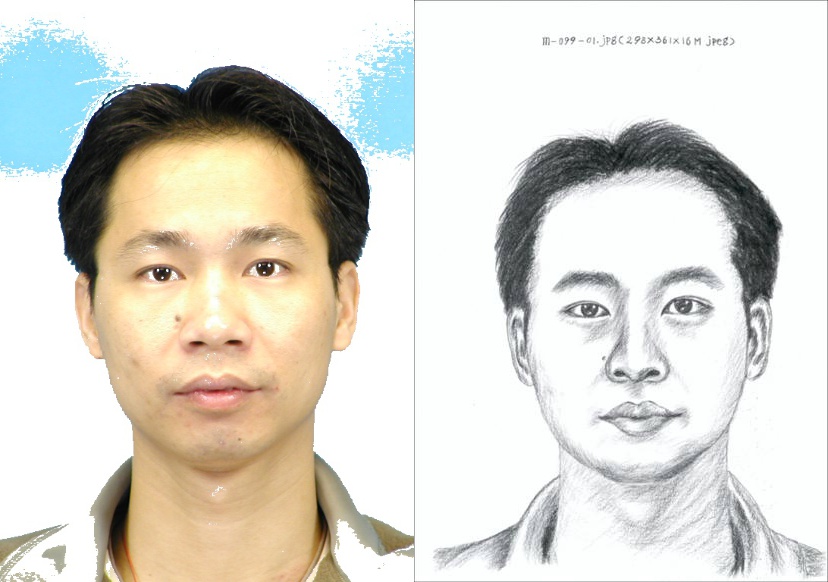 m-099-01.jpg(298×361×16M jpeg)